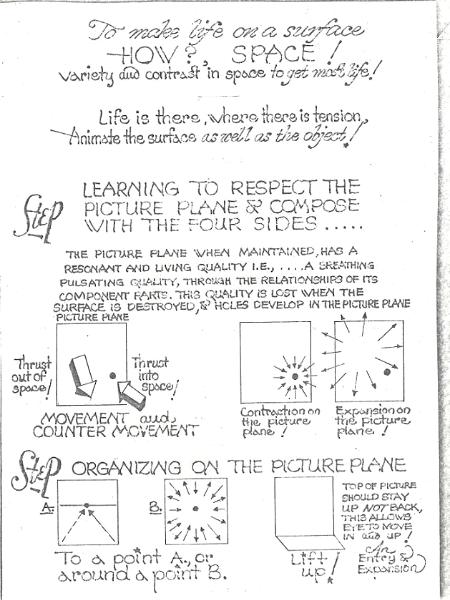 To make life on a surface
HOW? SPACE!
variety and contrast in space to get most life!
Life is there, where there is tension,
Animate the surface as well as the object!
Step
LEARNING TO RESPECT THE
PICTURE PLANE & COMPOSE
WITH THE FOUR SIDES.....
THE PICTURE PLANE WHEN MAINTAINED, HAS A
RESONANT AND LIVING QUALITY I.E., .... A BREATHING
PULSATING QUALITY, THROUGH THE RELATIONSHIPS OF ITS
COMPONENT PARTS. THIS QUALITY IS LOST WHEN THE
SURFACE IS DESTROYED, & HOLES DEVELOP IN THE PICTURE PLANE
PICTURE PLANE
Thrust
out of
space!
Thrust
into
space!
MOVEMENT and
COUNTER MOVEMENT
Contraction on
the picture
plane!
Expansion on
the picture
plane!
Step
ORGANIZING ON THE PICTURE PLANE
A.
B.
To a point A., or
around a point B.
Lift
up!
TOP OF PICTURE
SHOULD STAY
UP NOT BACK,
THIS ALLOWS
EYE TO MOVE
IN and UP!
(An
Entry &
Expansion)